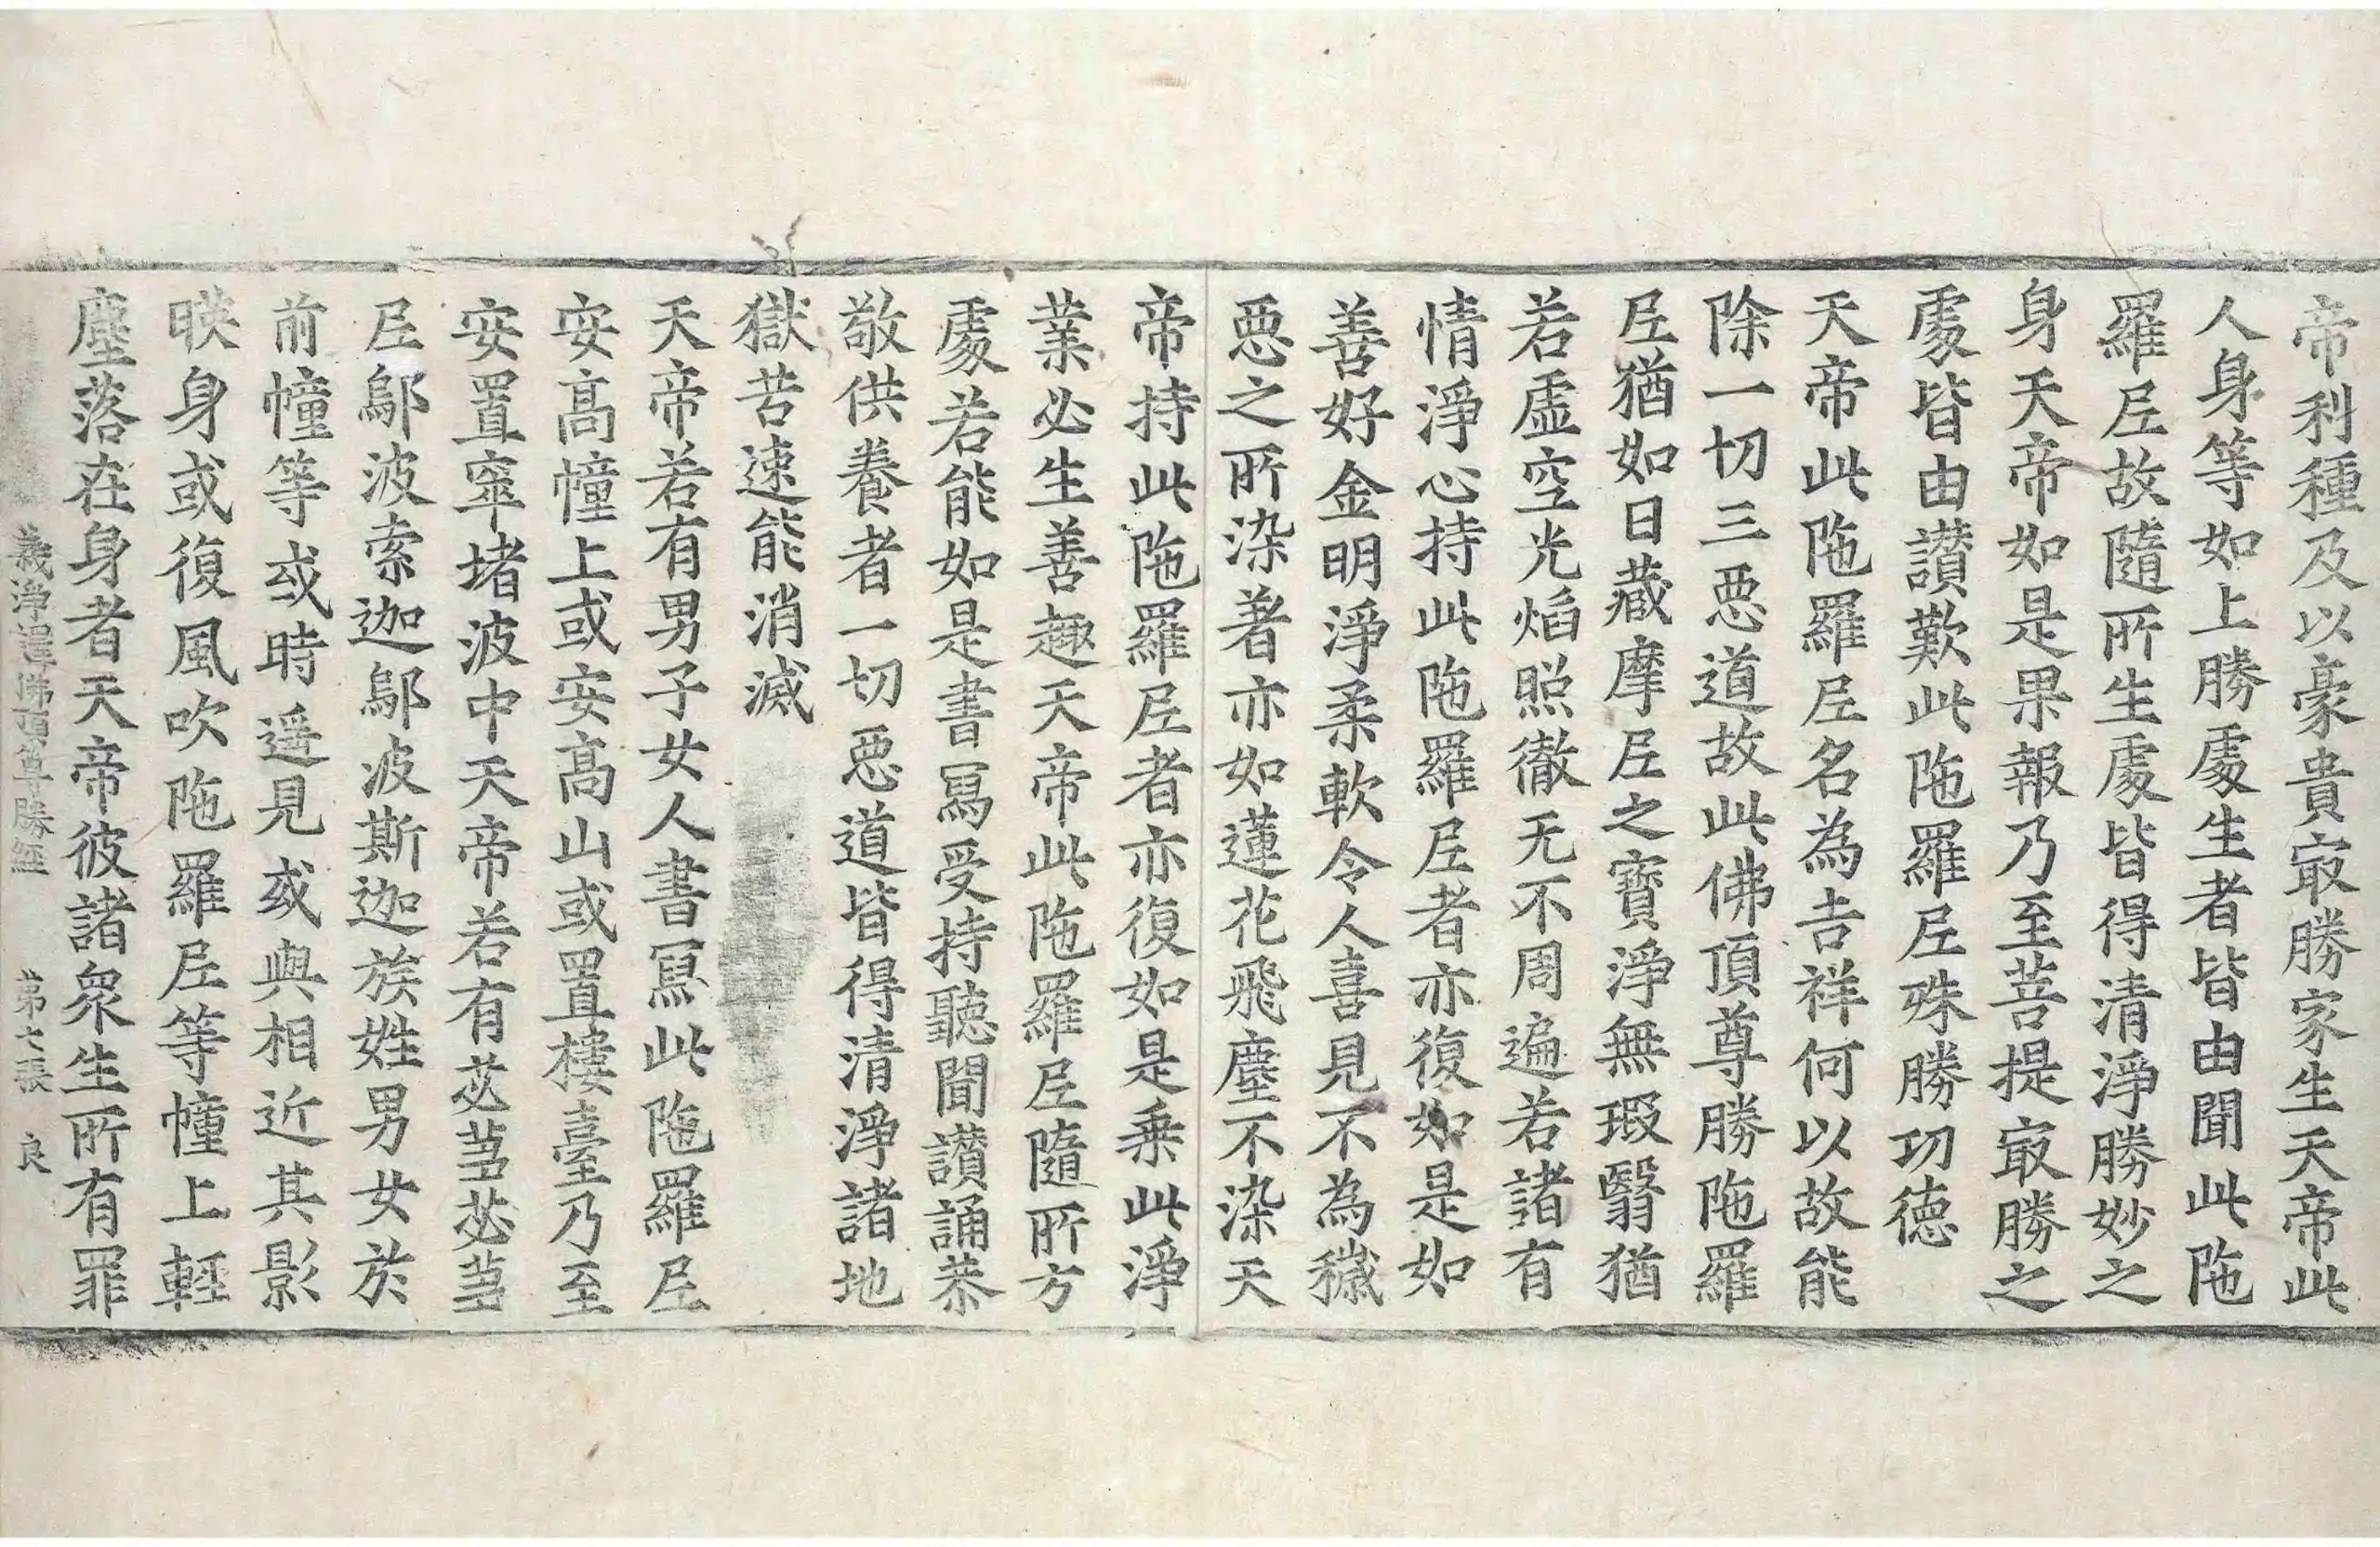 帝利種及以豪貴㝡勝家生天帝此
人身等如上勝處生者皆由聞此陁
羅尼故隨所生處皆得清淨勝妙之
身天帝如是果報乃至菩提㝡勝之
處皆由讃歎此陁羅尼殊勝功德
天帝此陁羅尼名為吉祥何以故能
除一切三惡道故此佛頂尊勝陁羅
尼猶如日藏摩尼之寶淨無瑕翳猶
若虛空光焰照徹无不周遍若諸有
情淨心持此陁羅尼者亦復如是如
善好金明淨柔軟令人喜見不為穢
惡之所染著亦如蓮花飛塵不染天
帝持此陁羅尼者亦復如是乗此淨
業必生善趣天帝此陁羅尼隨所方
處若能如是書寫受持聽聞讃誦恭
敬供養者一切惡道皆得清淨諸地
獄苦速能消滅
天帝若有男子女人書寫此陁羅尼
安高幢上或安高山或置樓臺乃至
安置窣堵波中天帝若有苾蒭苾蒭
尼鄔波索迦鄔波斯迦族姓男女於
前幢等或時遥見或與相近其影
映身或復風吹陁羅尼等幢上輕
塵落在身者天帝彼諸衆生所有罪
義淨譯佛頂尊勝經 第七張 良